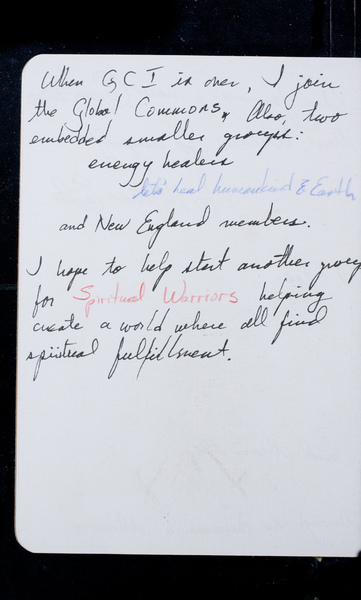 When GCI is over, I join
the Global Commons. Also, two
embedded smaller groups:
energy healers
let's heal humankind & Earth
and New England members.
I hope to help start another group
for Spiritual Warriors helping
create a world where all find
spiritual fulfillment.